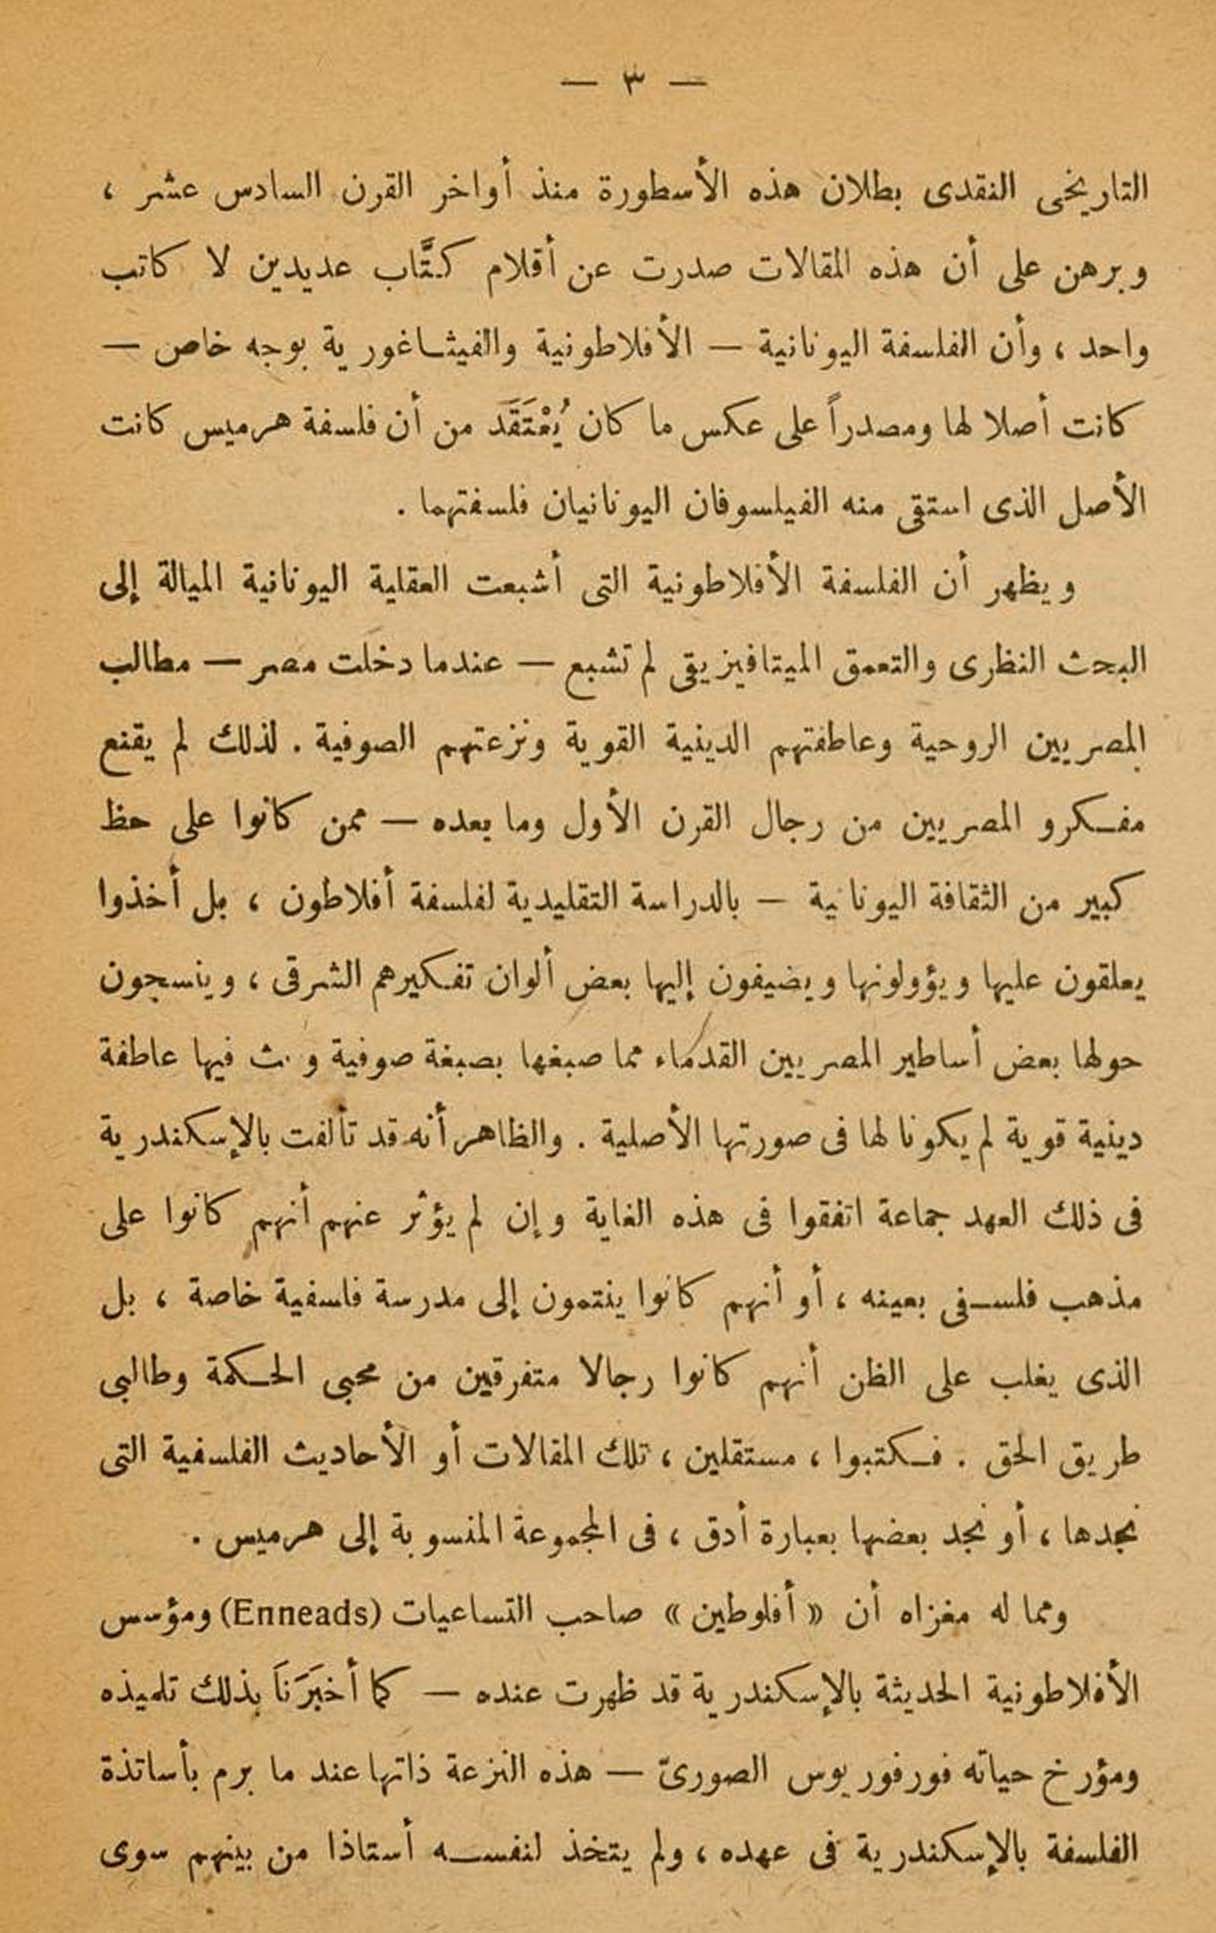 — ٣ —
التاريخى النقدى بطلان هذه الأسطورة منذ أواخر القرن السادس عشر ،
وبرهن على أن هذه المقالات صدرت عن أقلام كتَّاب عديدين لا كاتب
واحد ، وأن الفلسفة اليونانية — الأفلاطونية والفيثاغورية بوجه خاص —
كانت أصلا لها ومصدراً على عكس ما كان يُعْتَقَد من أن فلسفة هرميس كانت
الأصل الذى استقى منه الفيلسوفان اليونانيان فلسفتهما .
ويظهر أن الفلسفة الأفلاطونية التى أشبعت العقلية اليونانية الميالة إلى
البحث النظرى والتعمق الميتافيزيقى لم تشبع — عندما دخلت مصر — مطالب
المصريين الروحية وعاطفتهم الدينية القوية ونزعتهم الصوفية . لذلك لم يقنع
مفكرو المصريين من رجال القرن الأول وما بعده — ممن كانوا على حظ
كبير من الثقافة اليونانية — بالدراسة التقليدية لفلسفة أفلاطون ، بل أخذوا
يعلقون عليها ويؤولونها ويضيفون إليها بعض ألوان تفكيرهم الشرقى ، وينسجون
حولها بعض أساطير المصريين القدماء مما صبغها بصبغة صوفية وبث فيها عاطفة
دينية قوية لم يكونا لها فى صورتها الأصلية . والظاهر أنه قد تألفت بالإسكندرية
فى ذلك العهد جماعة اتفقوا فى هذه الغاية وإن لم يؤثر عنهم أنهم كانوا على
مذهب فلسفى بعينه ، أو أنهم كانوا ينتمون إلى مدرسة فلسفية خاصة ، بل
الذى يغلب على الظن أنهم كانوا رجالا متفرقين من محبى الحكمة وطالبى
طريق الحق . فكتبوا ، مستقلين ، تلك المقالات أو الأحاديث الفلسفية التى
نجدها ، أو نجد بعضها بعبارة أدق ، فى المجموعة المنسوبة إلى هرميس .
ومما له مغزاه أن « أفلوطين » صاحب التساعيات (Enneads) ومؤسس
الأفلاطونية الحديثة بالإسكندرية قد ظهرت عنده — كما أخبَرَنَا بذلك تلميذه
ومؤرخ حياته فورفوريوس الصورىّ — هذه النزعة ذاتها عند ما برم بأساتذة
الفلسفة بالإسكندرية فى عهده ، ولم يتخذ لنفسه أستاذا من بينهم سوى